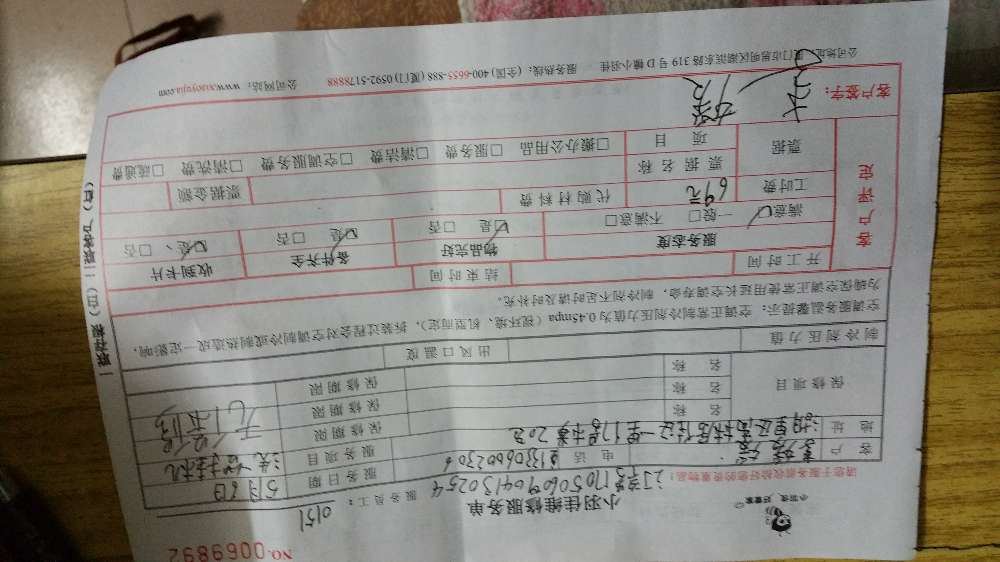 NO.0069892
小羽佳 好管家
小羽佳维修服务单
服务员工：0151
请您于服务前收拾好您的贵重物品！
客户
服务日期 5月6日
电话
服务项目 洗
地址
保修项目
名称
保修期限
名称
保修期限
名称
保修期限
制冷剂压力值
出风口温度
空调服务温馨提示：空调正常制冷剂压力值为0.45mpa（视环境、机型而定），拆装过程会对空调制冷或制热造成一定影响，
为确保空调正常使用延长空调寿命，制冷剂不足时请及时补充。
开工时间
结束时间
客户评定
服务态度
物品完好
备件齐全
收到卡片
满意□ 一般□ 不满意□
□是 □否
□是 □否
□是、□否
工时费 69元
代购材料费
票据金额
票据
票据名称
项目
□搬办公用品 □服务费 □清洁费 □空调服务费 □清洗费 □疏通费
客户签字：
公司地址：厦门市思明区湖滨东路 319 号 D 幢小羽佳 服务热线：(全国) 400-6655-888 (厦门) 0592-5178888 公司网站：www.xiaoyujia.com
一联存根（白）二联客户（红）